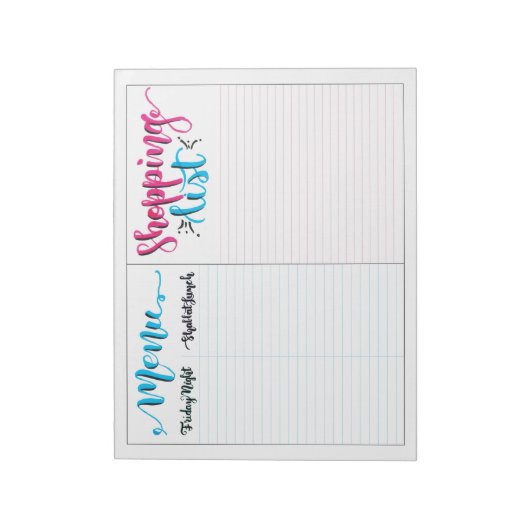 Menu
Friday Night Shabbat Lunch
Shopping
list